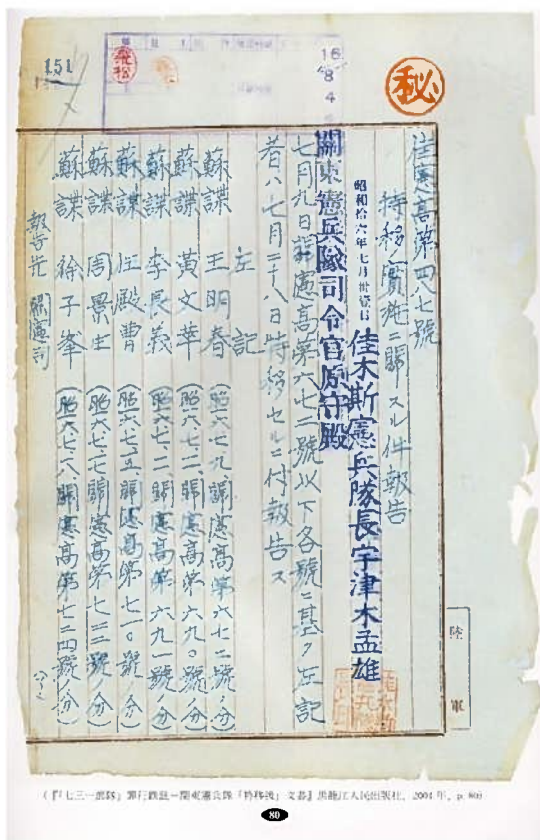 秘
151
16
8
4
佳憲高第四八七號
特移實施ニ關スル件報告
昭和拾六年七月卅壹日
佳木斯憲兵隊長宇津木孟雄
關東憲兵隊司令官原守殿
七月九日關憲高第六七二號以下各號ニ基ク左記
者ハ七月二十八日特移セルニ付報告ス
左記
蘇諜 王明春(昭一六、七、九、關憲高第六七二號ノ分)
蘇諜 黃文華(昭一六、七、一二、關憲高第六九〇號ノ分)
蘇諜 李長義(昭一六、七、一二、關憲高第六九一號ノ分)
蘇諜 殿曹(昭一六、七、一五、關憲高第七一〇號ノ分)
蘇諜 周景生(昭一六、七、一七、關憲高第七二三號ノ分)
蘇諜 徐子峯(昭一六、七、一八、關憲高第七二四號ノ分)
報告先 關憲司
(了)
陸軍
(『「七三一部隊」罪行鉄証-関東憲兵隊「特移扱」文書』黒龍江人民出版社、2001年、p.80)
80